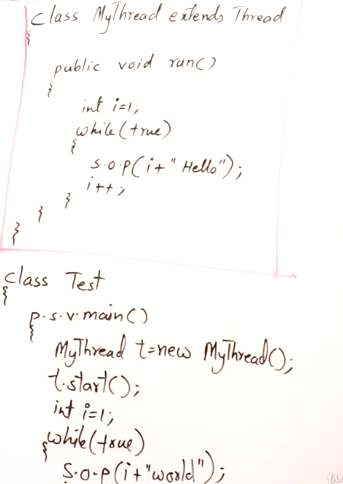 class MyThread extends Thread
{
public void run()
{
int i=1;
while(true)
{
S.O.P(i+" Hello");
i++;
}
}
}
class Test
{
p.s.v.main()
{
MyThread t=new MyThread();
t.start();
int i=1;
while(true)
{
S.O.P(i+"world");